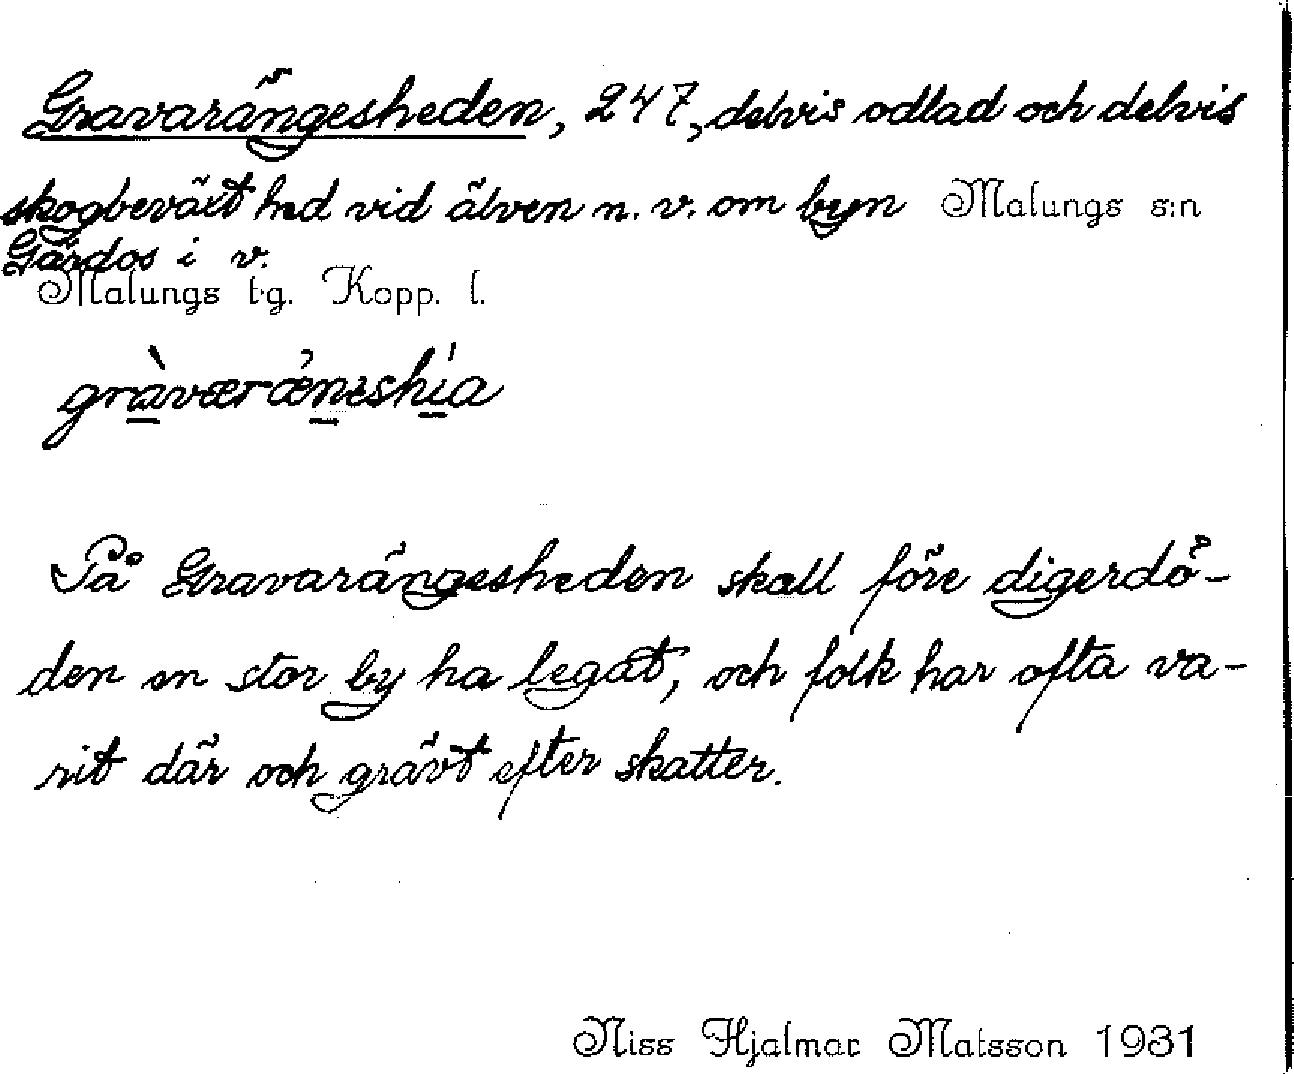 Gravarängesheden, 247, delvis odlad och delvis
skogbeväxt hed vid älven n. v. om byn Malungs s:n
Gärdos i v.
Malungs t.g. Kopp. l.
På Gravarängesheden skall före digerdö-
den en stor by ha legat, och folk har ofta va-
rit där och grävt efter skatter.
Niss Hjalmar Matsson 1931